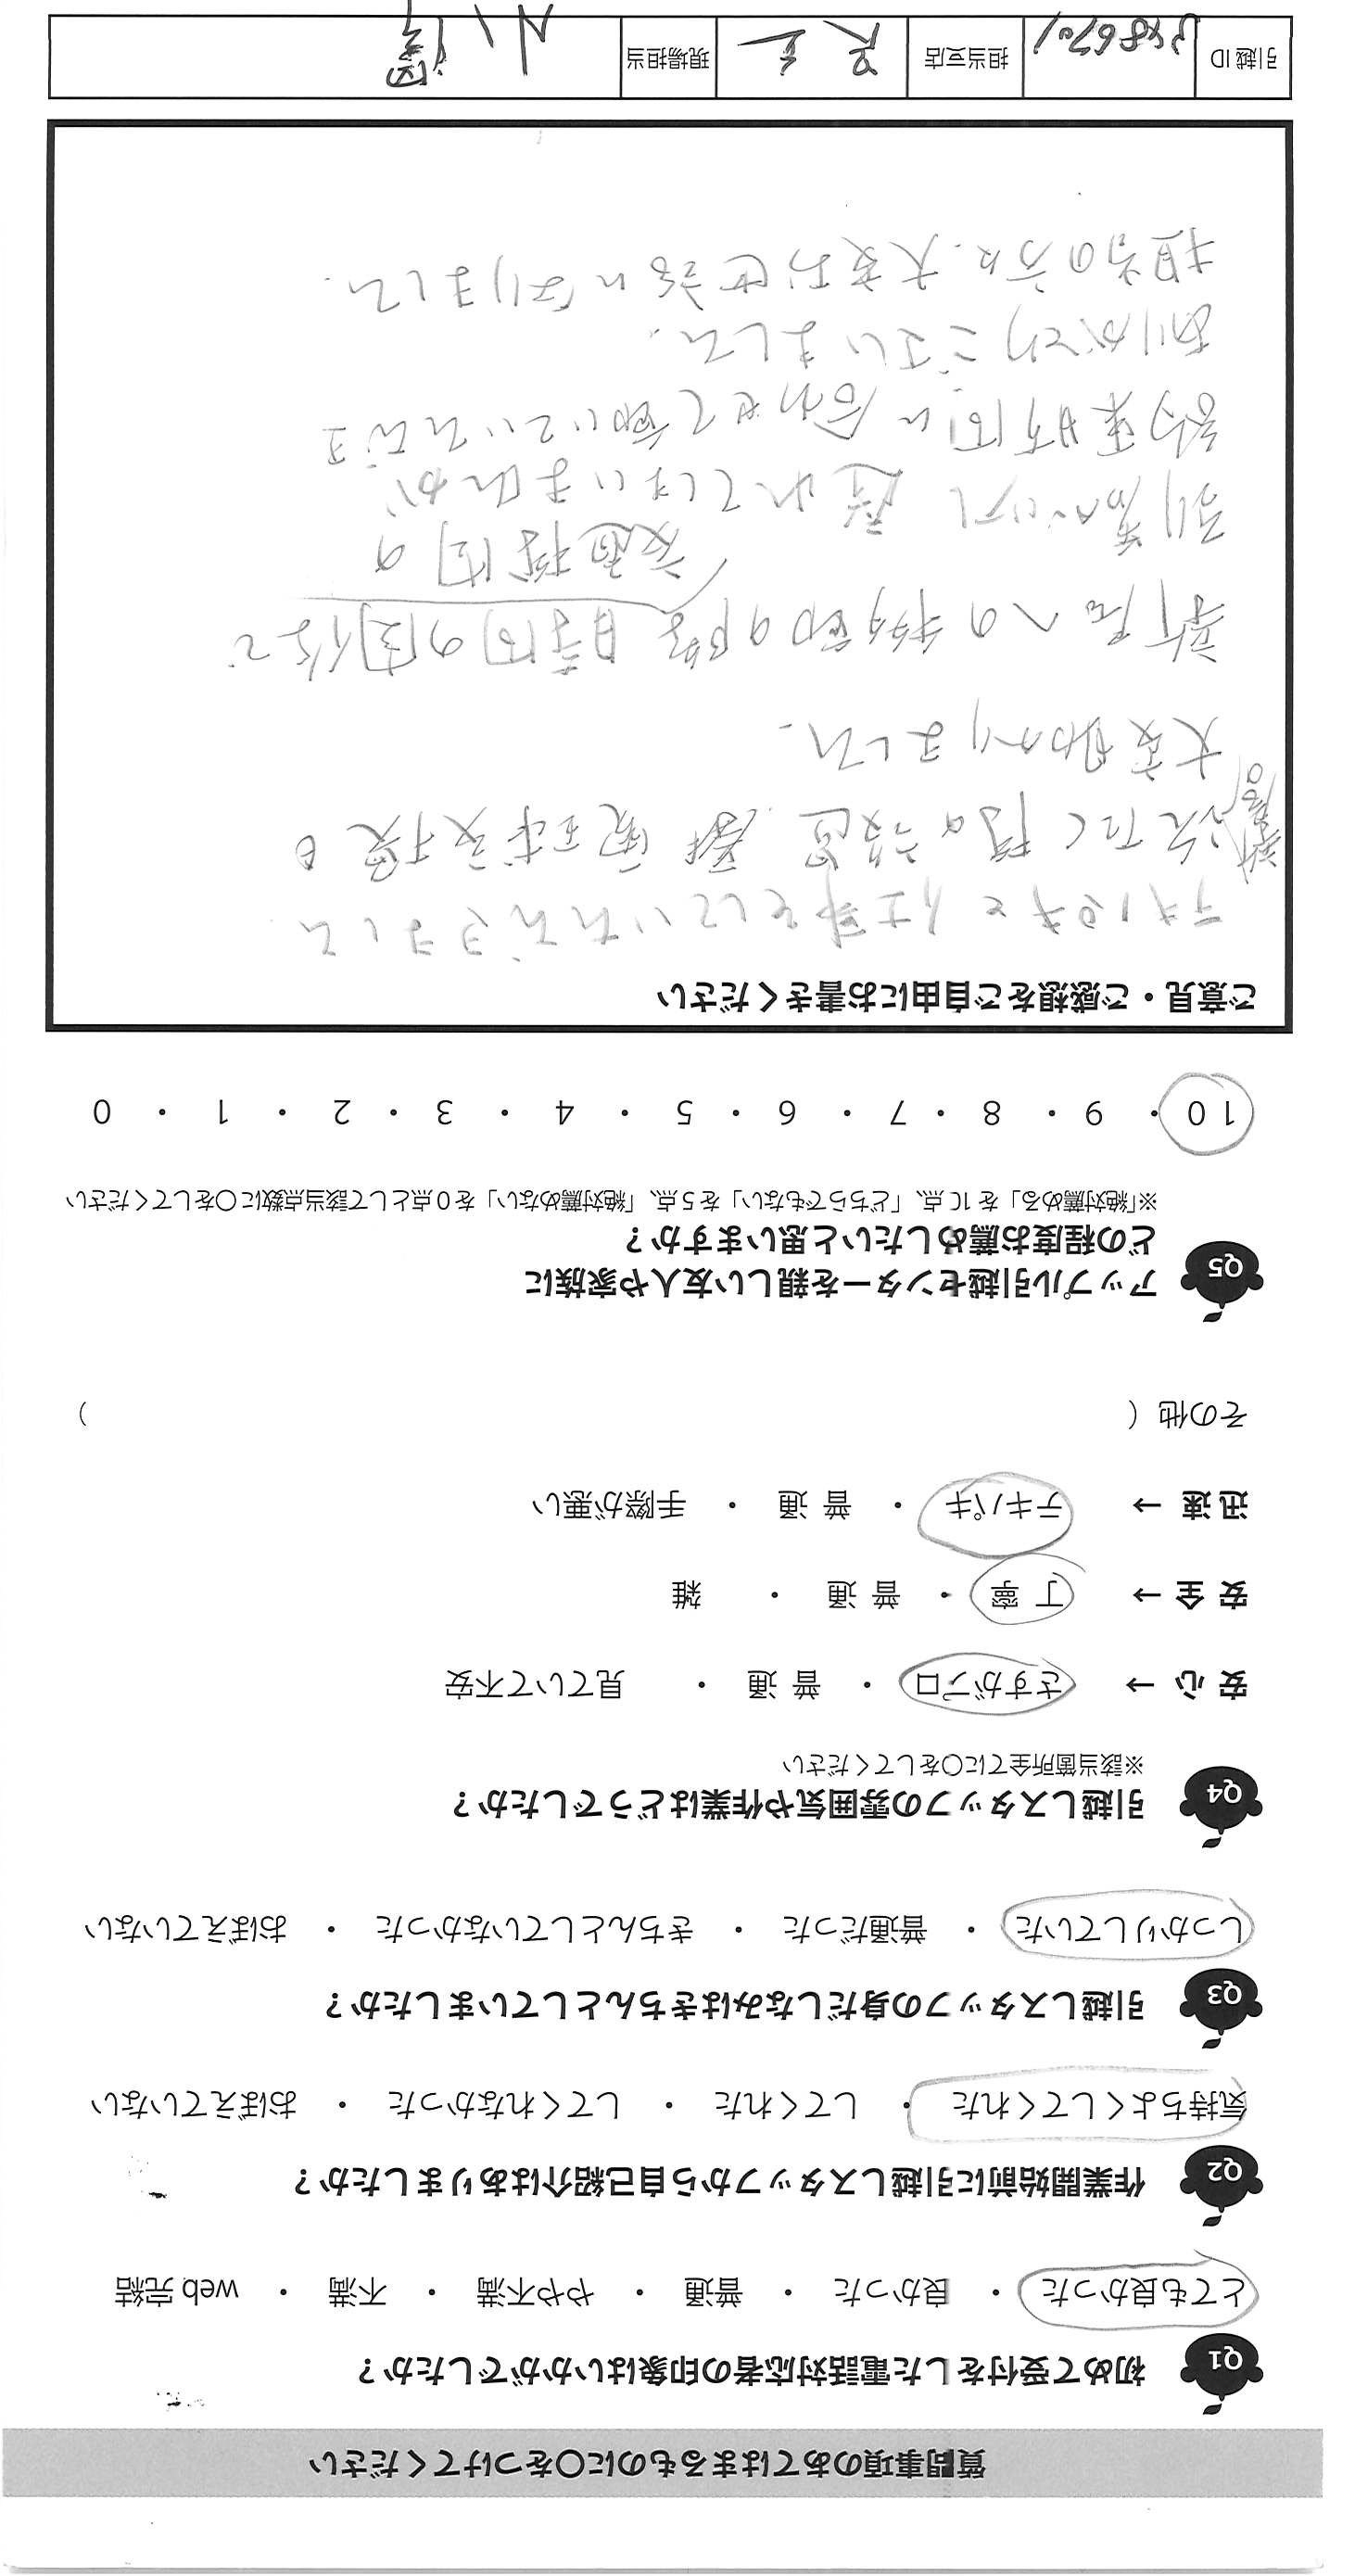 質問事項のあてはまるものに〇をつけてください
Q1 初めて受付をした電話対応者の印象はいかがでしたか？
とても良かった ・ 良かった ・ 普通 ・ やや不満 ・ 不満 ・ web 完結
Q2 作業開始前に引越しスタッフから自己紹介はありましたか？
気持ちよくしてくれた ・ してくれた ・ してくれなかった ・ おぼえていない
Q3 引越しスタッフの身だしなみはきちんとしていましたか？
しっかりしていた ・ 普通だった ・ きちんとしていなかった ・ おぼえていない
Q4 引越しスタッフの雰囲気や作業はどうでしたか？
※該当箇所全てに〇をしてください
安 心 → さすがプロ ・ 普 通 ・ 見ていて不安
安 全 → 丁 寧 ・ 普 通 ・ 雑
迅 速 → テキパキ ・ 普 通 ・ 手際が悪い
その他（ ）
Q5 アップル引越センターを親しい友人や家族に
どの程度お薦めしたいと思いますか？
※「絶対薦める」を 10 点、「どちらでもない」を 5 点、「絶対薦めない」を 0 点として該当点数に〇をしてください
10 ・ 9 ・ 8 ・ 7 ・ 6 ・ 5 ・ 4 ・ 3 ・ 2 ・ 1 ・ 0
ご意見・ご感想をご自由にお書きください
テキパキと仕事をしていただきました
洗たく機の設置、電球交換も
大変助かりました。
新居への移動の際 時間の関係で
交通機関の
到着が 遅れてしまいましたが、
約束時間に合わせて動いていただき
ありがとうございました。
担当の方に、大変お世話になりました。
引越 ID
担当支店 足立
現場担当 小澤